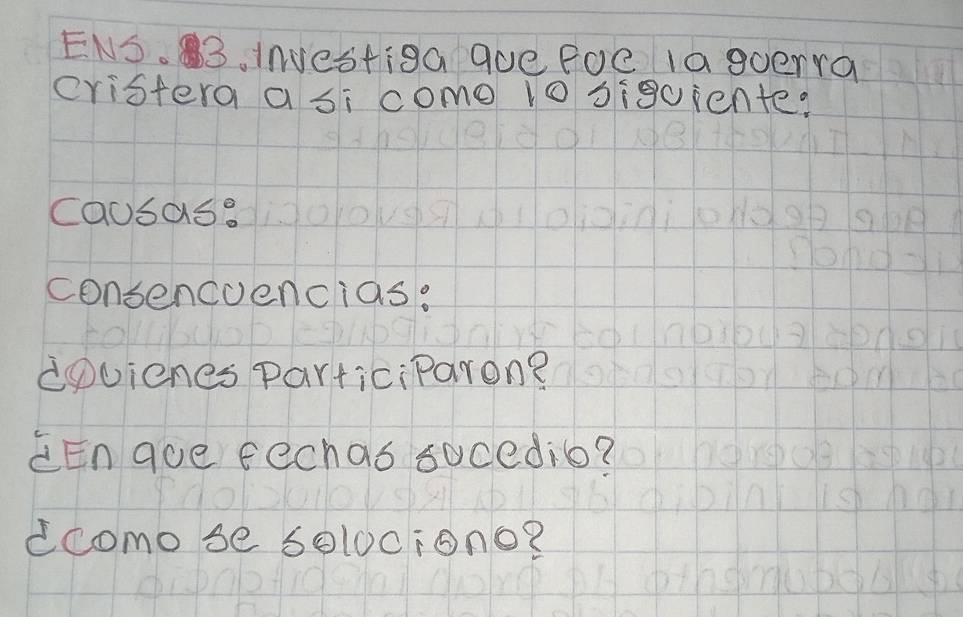 ENS. 3. investiga que fue la guerra
cristera a si como lo siguiente:
causas:
consencuencias:
¿Quienes participaron?
¿En que fechas sucedio?
¿como se soluciono?